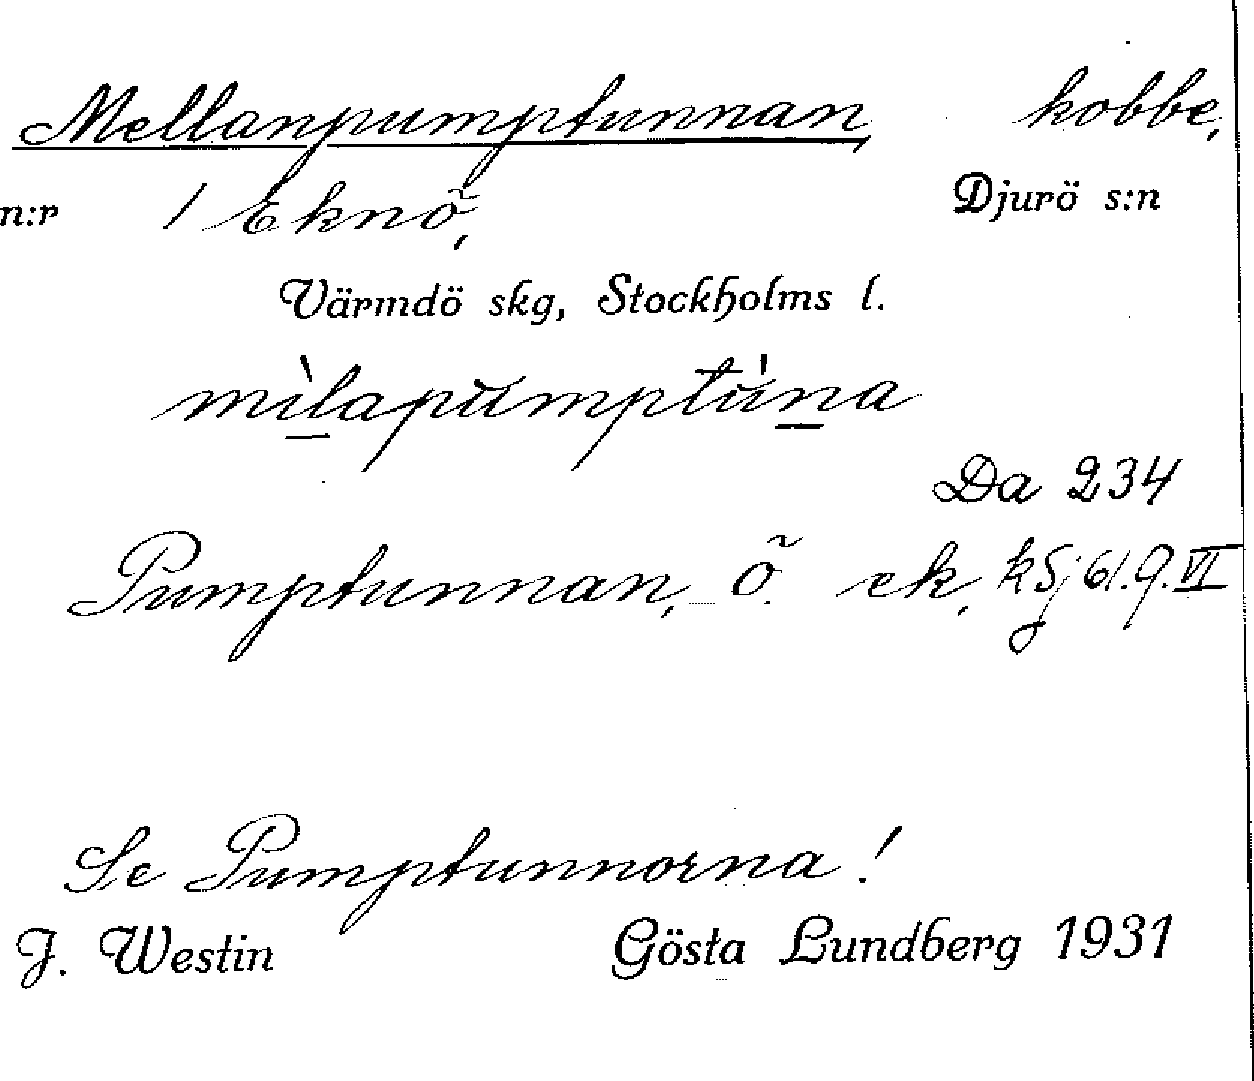 Mellanpumptunnan, kobbe,
n:r 1 Eknö, Djurö s:n
Värmdö skg, Stockholms l.
mìlapumptúna
Da 234
Pumptunnan, Ö ek, kSj 61.9.VI
Se Pumptunnorna!
J. Westin Gösta Lundberg 1931